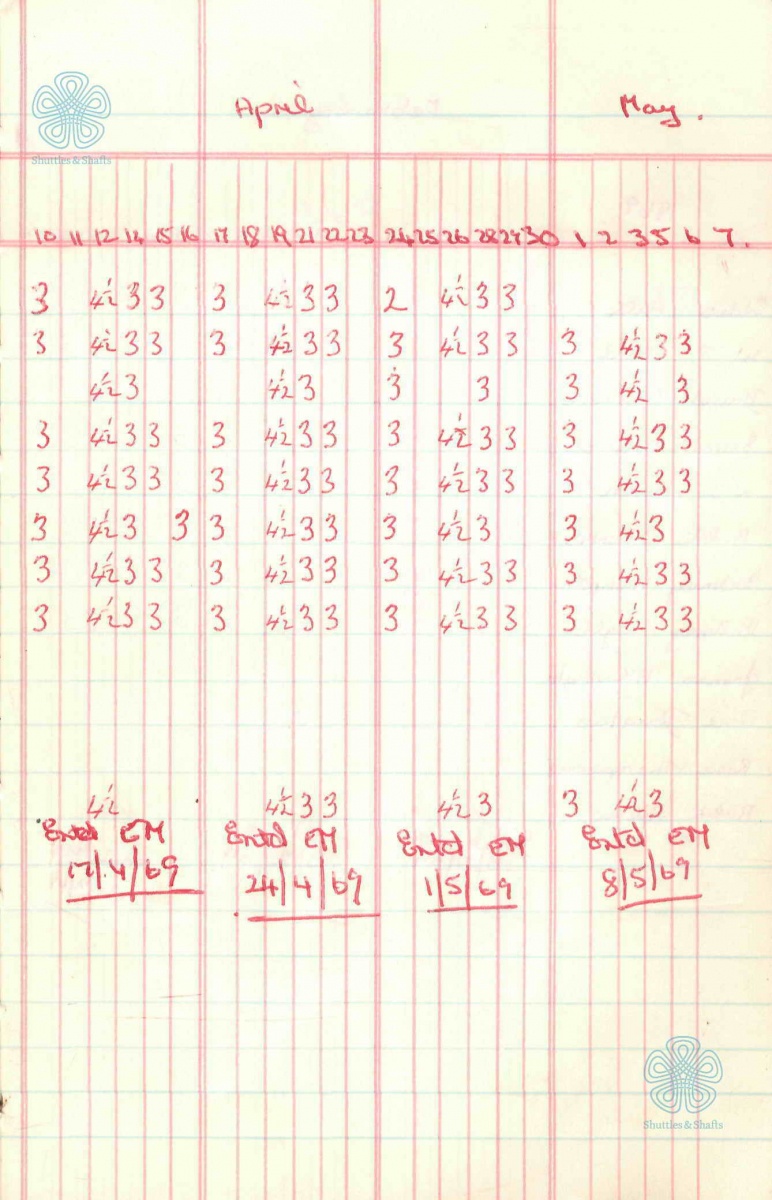 April May.
Shuttles & Shafts
10 11 12 14 15 16 17 18 19 21 22 23 24 25 26 28 29 30 1 2 3 5 6 7.
3 4½ 3 3 3 4½ 3 3 2 4½ 3 3
3 4½ 3 3 3 4½ 3 3 3 4½ 3 3 3 4½ 3 3
4½ 3 4½ 3 3 3 3 4½ 3
3 4½ 3 3 3 4½ 3 3 3 4½ 3 3 3 4½ 3 3
3 4½ 3 3 3 4½ 3 3 3 4½ 3 3 3 4½ 3 3
3 4½ 3 3 3 4½ 3 3 3 4½ 3 3 4½ 3
3 4½ 3 3 3 4½ 3 3 3 4½ 3 3 3 4½ 3 3
3 4½ 3 3 3 4½ 3 3 3 4½ 3 3 3 4½ 3 3
4½ 4½ 3 3 4½ 3 3 4½ 3
Entd EM Entd EM Entd EM Entd EM
17/4/69 24/4/69 1/5/69 8/5/69
Shuttles & Shafts